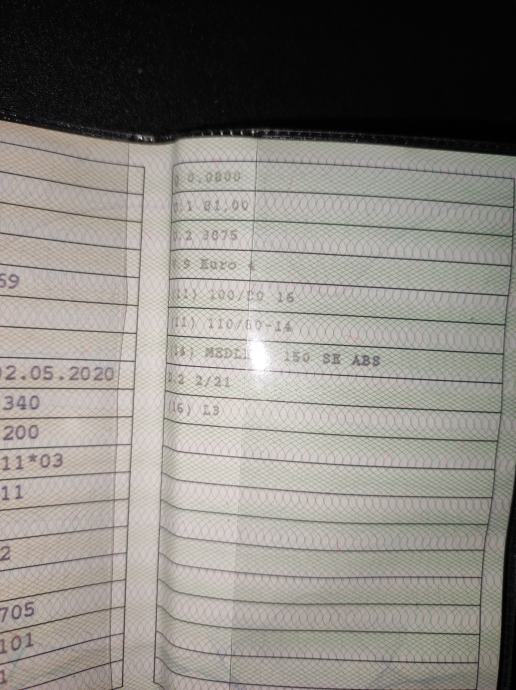 59
02.05.2020
340
200
11*03
11
2
705
101
1
0.0800
.1 81,00
.2 3875
.9 Euro 4
(11) 100/80 16
(11) 110/80-14
150 SE ABS
.2 2/21
(16) L3